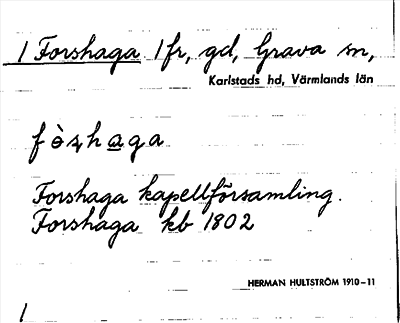 1 Forshaga 1 fr, gd, Grava sn,
Karlstads hd, Värmlands län
Forshaga kapellförsamling.
Forshaga kb 1802
HERMAN HULTSTRÖM 1910-11
1